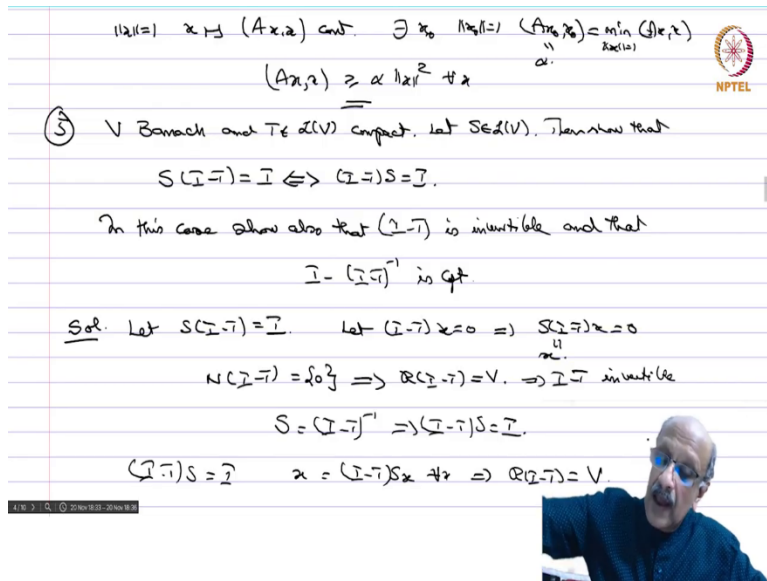 ||x||=1 x ↦ (Ax,x) cont. ∃ x₀ ||x₀||=1 (Ax₀,x₀) = min (Ax,x)
α. ||x||=1
(Ax,x) ≥ α ||x||² ∀x
NPTEL
③ V Banach and T∈ L(V) compact. Let S∈L(V). Then show that
S(I-T) = I ⟺ (I-T)S = I.
In this case show also that (I-T) is invertible and that
I - (I-T)⁻¹ is cpt.
Sol. Let S(I-T) = I. Let (I-T)x=0 ⇒ S(I-T)x=0
x.
N(I-T) = {0} ⇒ R(I-T) = V. ⇒ I-T invertible
S = (I-T)⁻¹ ⇒ (I-T)S = I.
(I-T)S = I x = (I-T)Sx ∀x ⇒ R(I-T) = V.
4/10 20 Nov 18:33 - 20 Nov 18:36